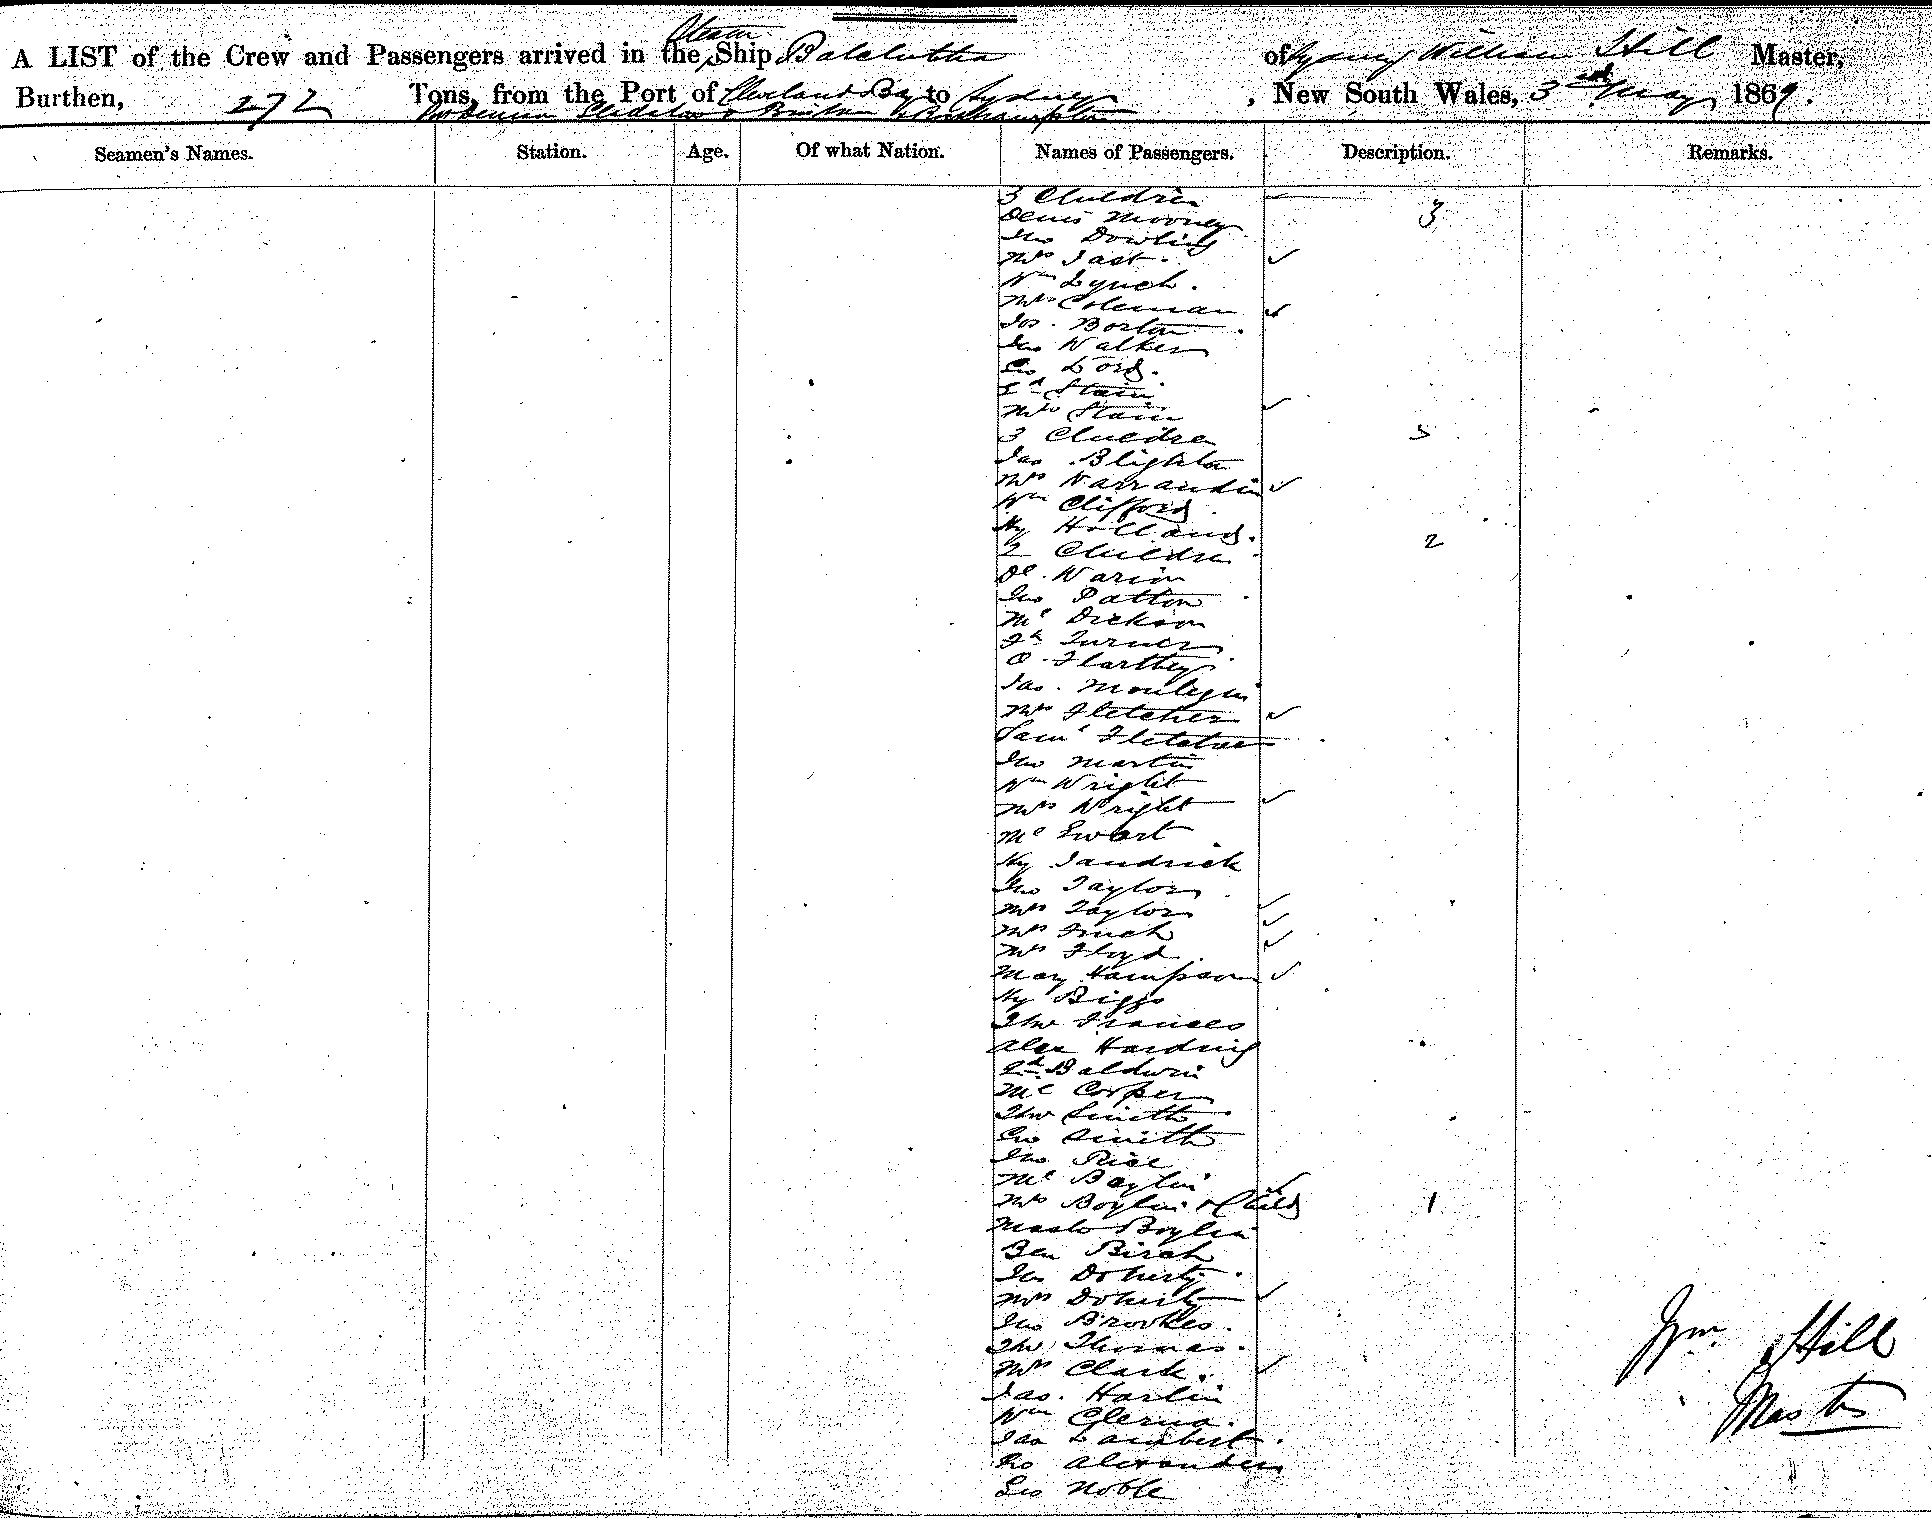 Steam
A LIST of the Crew and Passengers arrived in the Ship Balclutha of Sydney William Hill Master,
Burthen, 272 Tons, from the Port of Cleveland Bay to Sydney, New South Wales, 3rd May 1869.
Seamen's Names. Station. Age. Of what Nation. Names of Passengers. Description. Remarks.
3 Children 3
Denis Mooney
Jno Dowling
Mrs Jast
Wm Lynch.
Mrs Coleman
Jos. Borton
Jno Walker
Geo Lord.
Ed Stain
Mrs Stain
3 Children 3
Jas Blighton
Mrs Warrandin
Wm Clifford
Hy Holland.
2 Children 2
Jno Patton
Mc Dickson
Turner
O. Flarthey
Jas.
Mrs Fletcher
Saml Fletcher
Jno Martin
Wm Wright
Mrs Wright
Mc Ewart
Hy Jandrick
Jno Taylor
Mrs Taylor
Mrs Finch
Mrs Floyd
Mary Hampson
Hy Biggs
Thos Frances
Alex Harding
Ed Baldwin
Mc Cooper
Thos Smith
Geo Smith
Jno Rice
Mc Boylin
Mrs Boylin & Child 1
Mastr Boylin
Ben Birch
Jas Doherty
Mrs Doherty
Jno Brookes.
Thos Thomas.
Mrs Clark.
Jas. Harlin
Wm
Jas Lambert
Geo Alexander
Geo Noble
Wm Hill
Master